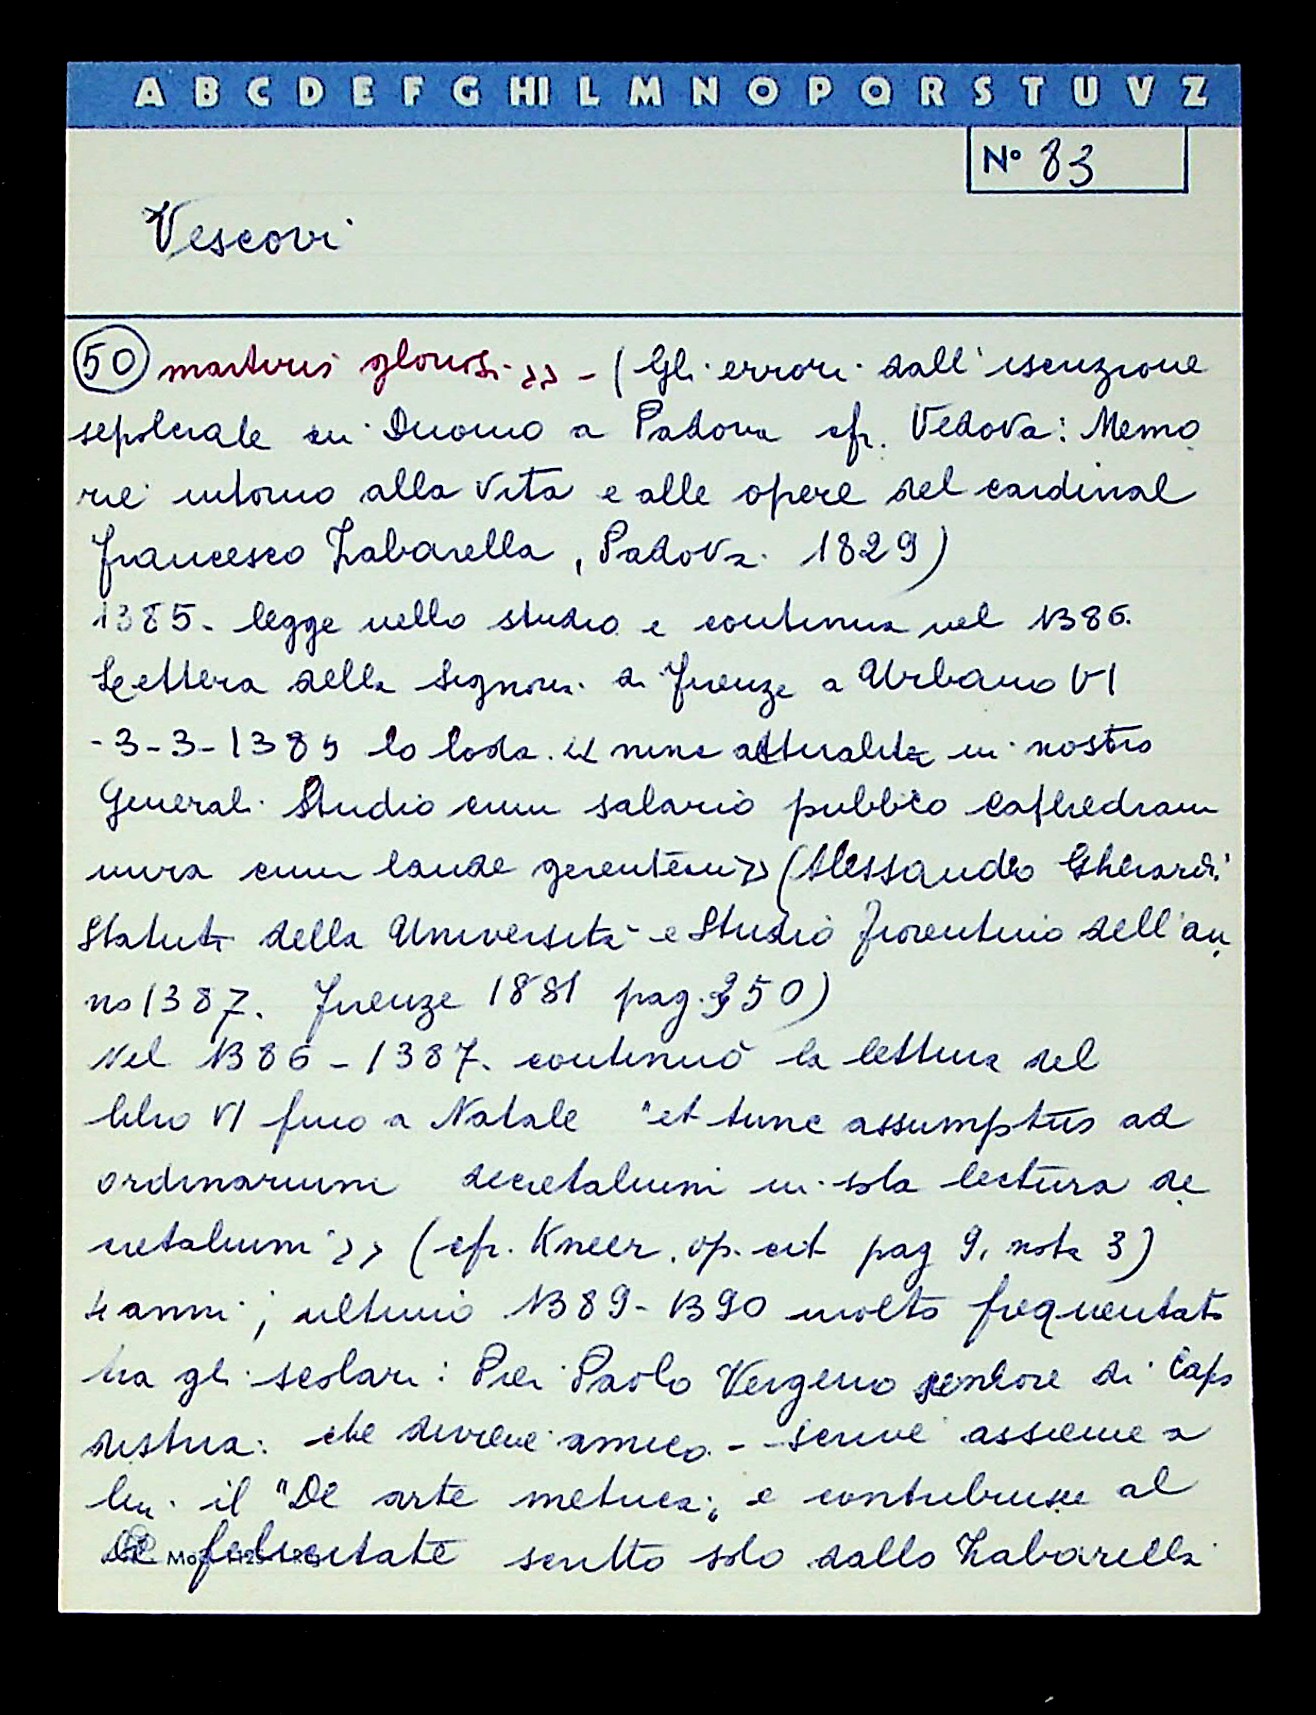 A B C D E F G HI L M N O P Q R S T U V Z
N° 83
Vescovi
50 martiris gloriosi >> - (Gli errori dall'iscrizione
sepolcrale in Duomo a Padova cfr. Vedova: Memo
rie intorno alla vita e alle opere del cardinal
Francesco Zabarella, Padova. 1829)
1385. legge nello studio e continua nel 1386.
Lettera della Signoria di Firenze a Urbano VI
-3-3-1385 lo loda. << nunc actualiter in nostro
Generali Studio cum salario pubblico cathedram
mira cum laude gerentem >> (Alessandro Gherardi
Statuti della Università e Studio fiorentino dell'an
no 1387. Firenze 1881 pag. 350)
Nel 1386 - 1387. continuò la lettura del
libro VI fino a Natale "et tunc assumptus ad
ordinarium decretalium in sola lectura de
cretalium >> (cfr. Kneer, op. cit pag 9, nota 3)
4 anni; ultimo 1389 - 1390 molto frequentato
tra gli scolari: Pier Paolo Vergerio seniore di Capo
distria: che diviene amico - scrive assieme a
lui il "De arte metrica" e contribuisce al
De felicitate scritto solo dallo Zabarella